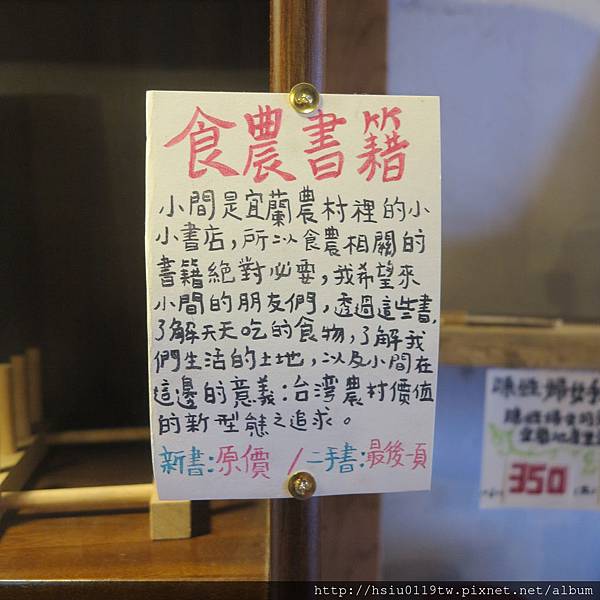 食農書籍
小間是宜蘭農村裡的小
小書店，所以食農相關的
書籍絕對必要，我希望來
小間的朋友們，透過這些書，
了解天天吃的食物，了解我
們生活的土地，以及小間在
這邊的意義：台灣農村價值
的新型態之追求。
新書：原價 / 二手書：最後一頁
350
http://hsiu0119tw.pixnet.net/album